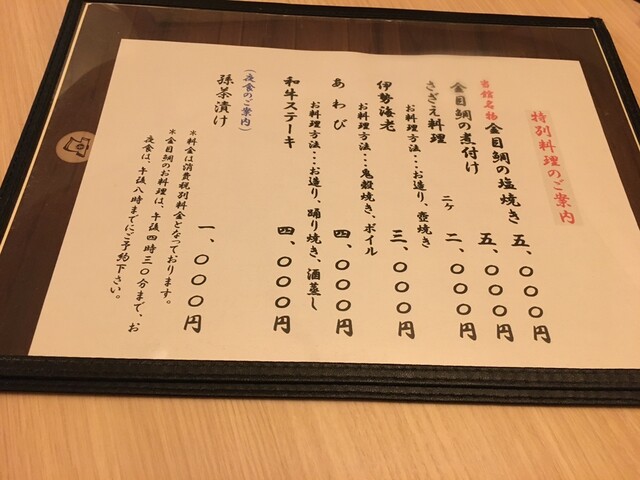 特別料理のご案内
当館名物 金目鯛の塩焼き 五、〇〇〇円
金目鯛の煮付け 五、〇〇〇円
さざえ料理 二ケ 二、〇〇〇円
お料理方法・・・お造り、壺焼き
伊勢海老 三、〇〇〇円
お料理方法・・・鬼殻焼き、ボイル
あわび 四、〇〇〇円
お料理方法・・・お造り、踊り焼き、酒蒸し
和牛ステーキ 四、〇〇〇円
(夜食のご案内)
孫茶漬け 一、〇〇〇円
*料金は消費税別料金となっております。
*金目鯛のお料理は、午後四時三〇分まで、お
夜食は、午後八時までにご予約下さい。